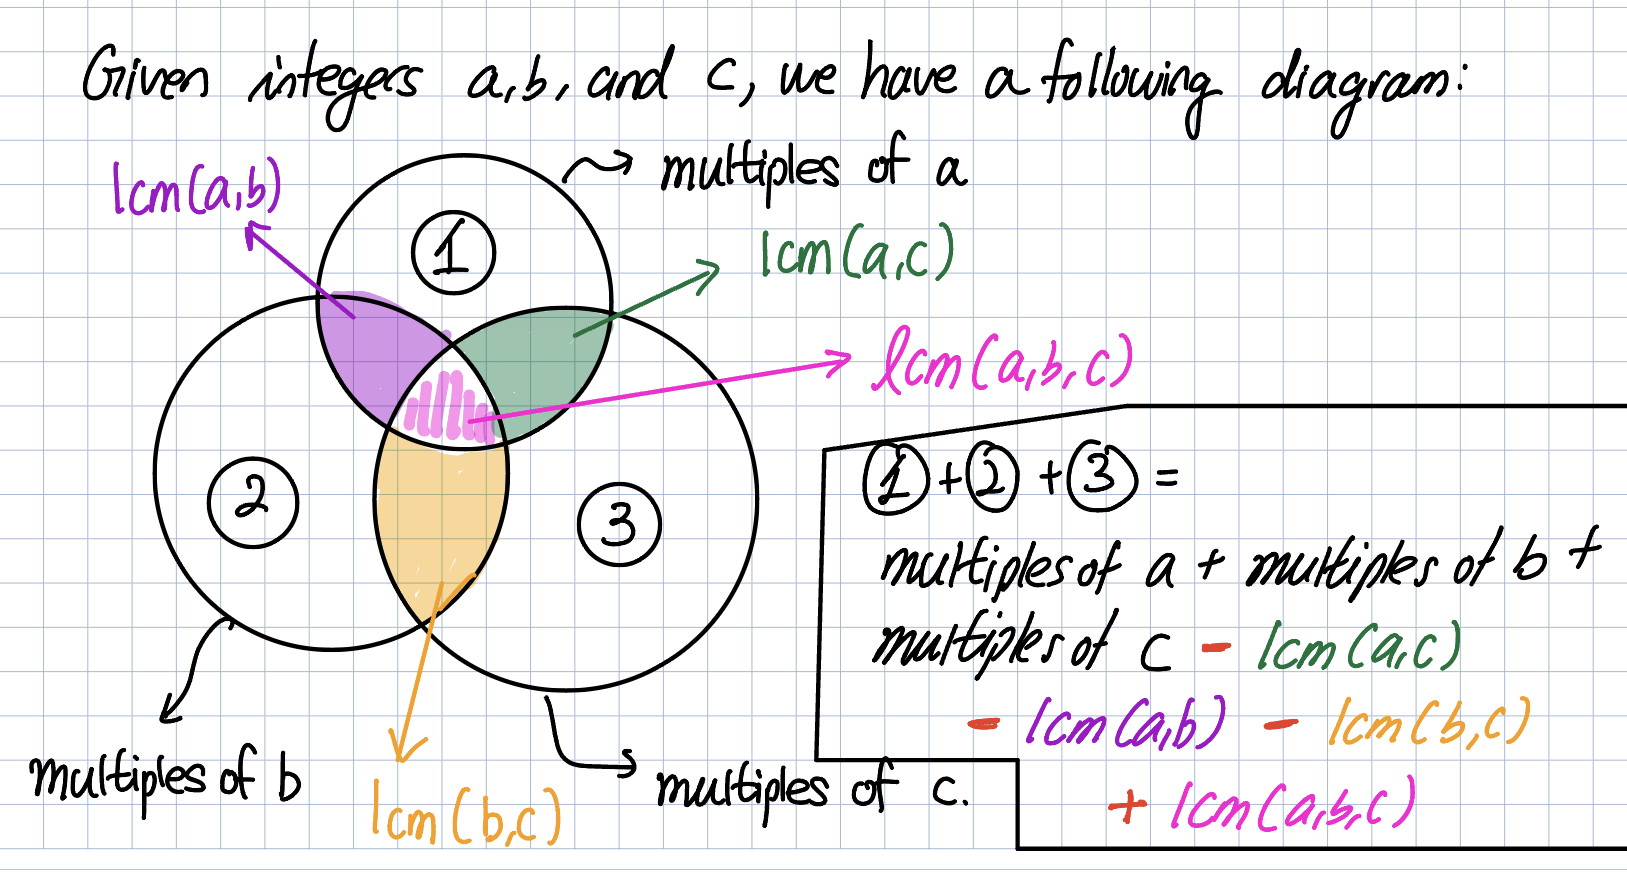 Given integers a,b, and c, we have a following diagram:
multiples of a
lcm(a,b)
1
lcm(a,c)
lcm(a,b,c)
2
3
multiples of b
lcm(b,c)
multiples of c.
1 + 2 + 3 =
multiples of a + multiples of b +
multiples of c - lcm(a,c)
- lcm(a,b) - lcm(b,c)
+ lcm(a,b,c)